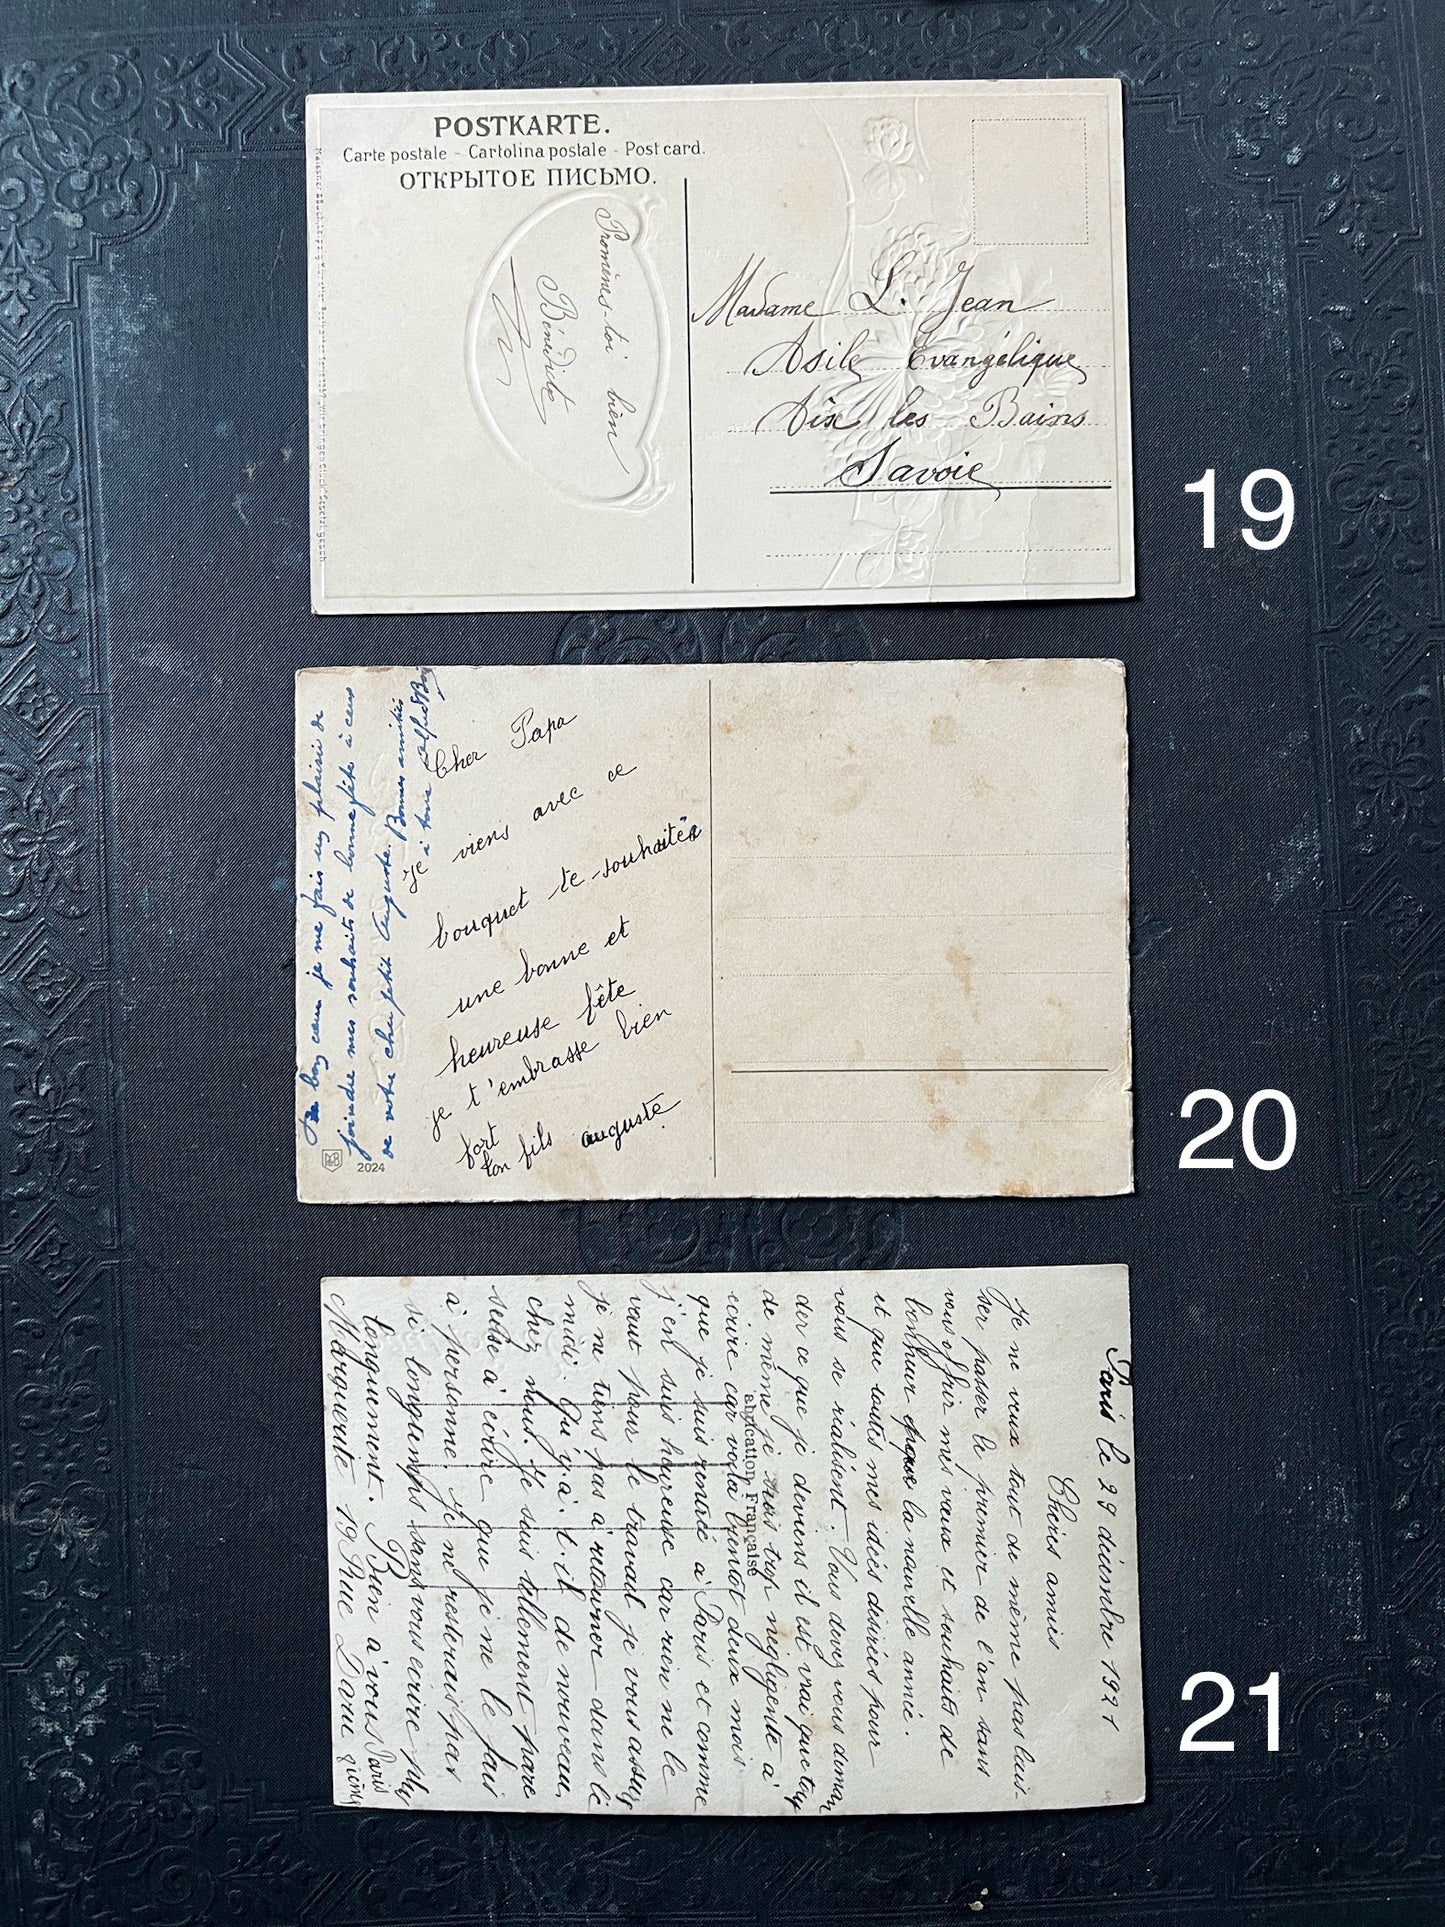 POSTKARTE.
Carte postale - Cartolina postale - Post card.
ОТКРЫТОЕ ПИСЬМО.
Promènes-toi bien
Bénédicte
Madame L. Jean
Asile Evangélique
Aix les Bains
Savoie
19
De bon cœur je me fais un plaisir de
joindre mes souhaits de bonne fête à ceux
de votre cher petit Auguste. Bonnes amitiés
à tous Alfred
Cher Papa
je viens avec ce
bouquet te souhaiter
une bonne et
heureuse fête
je t'embrasse bien
fort
ton fils auguste
2024
20
Paris le 29 décembre 1921
Chères amies
Je ne veux tout de même pas lais-
ser passer le premier de l'an sans
vous offrir mes vœux et souhaits de
bonheur pour la nouvelle année.
et que toutes mes idées desirées pour
vous se réalisent. Vous devez vous deman
der ce que je deviens il est vrai que
de même je suis trop negligente à
ecrire car voila bientot deux mois
que je suis rentré à Paris et comme
j'en suis heureuse car rien ne le
vaut pour le travail je vous assure
je ne tiens pas a retourner dans le
midi. Qu'y. a. t. il de nouveau
chez vous. Je suis tellement pare
seuse à écrire que je ne le fais
à personne. Je ne resterais pas
si longtemps sans vous ecrire plus
longuement. Bien à vous
Marguerite 19 Rue Paris
abrication Française
21